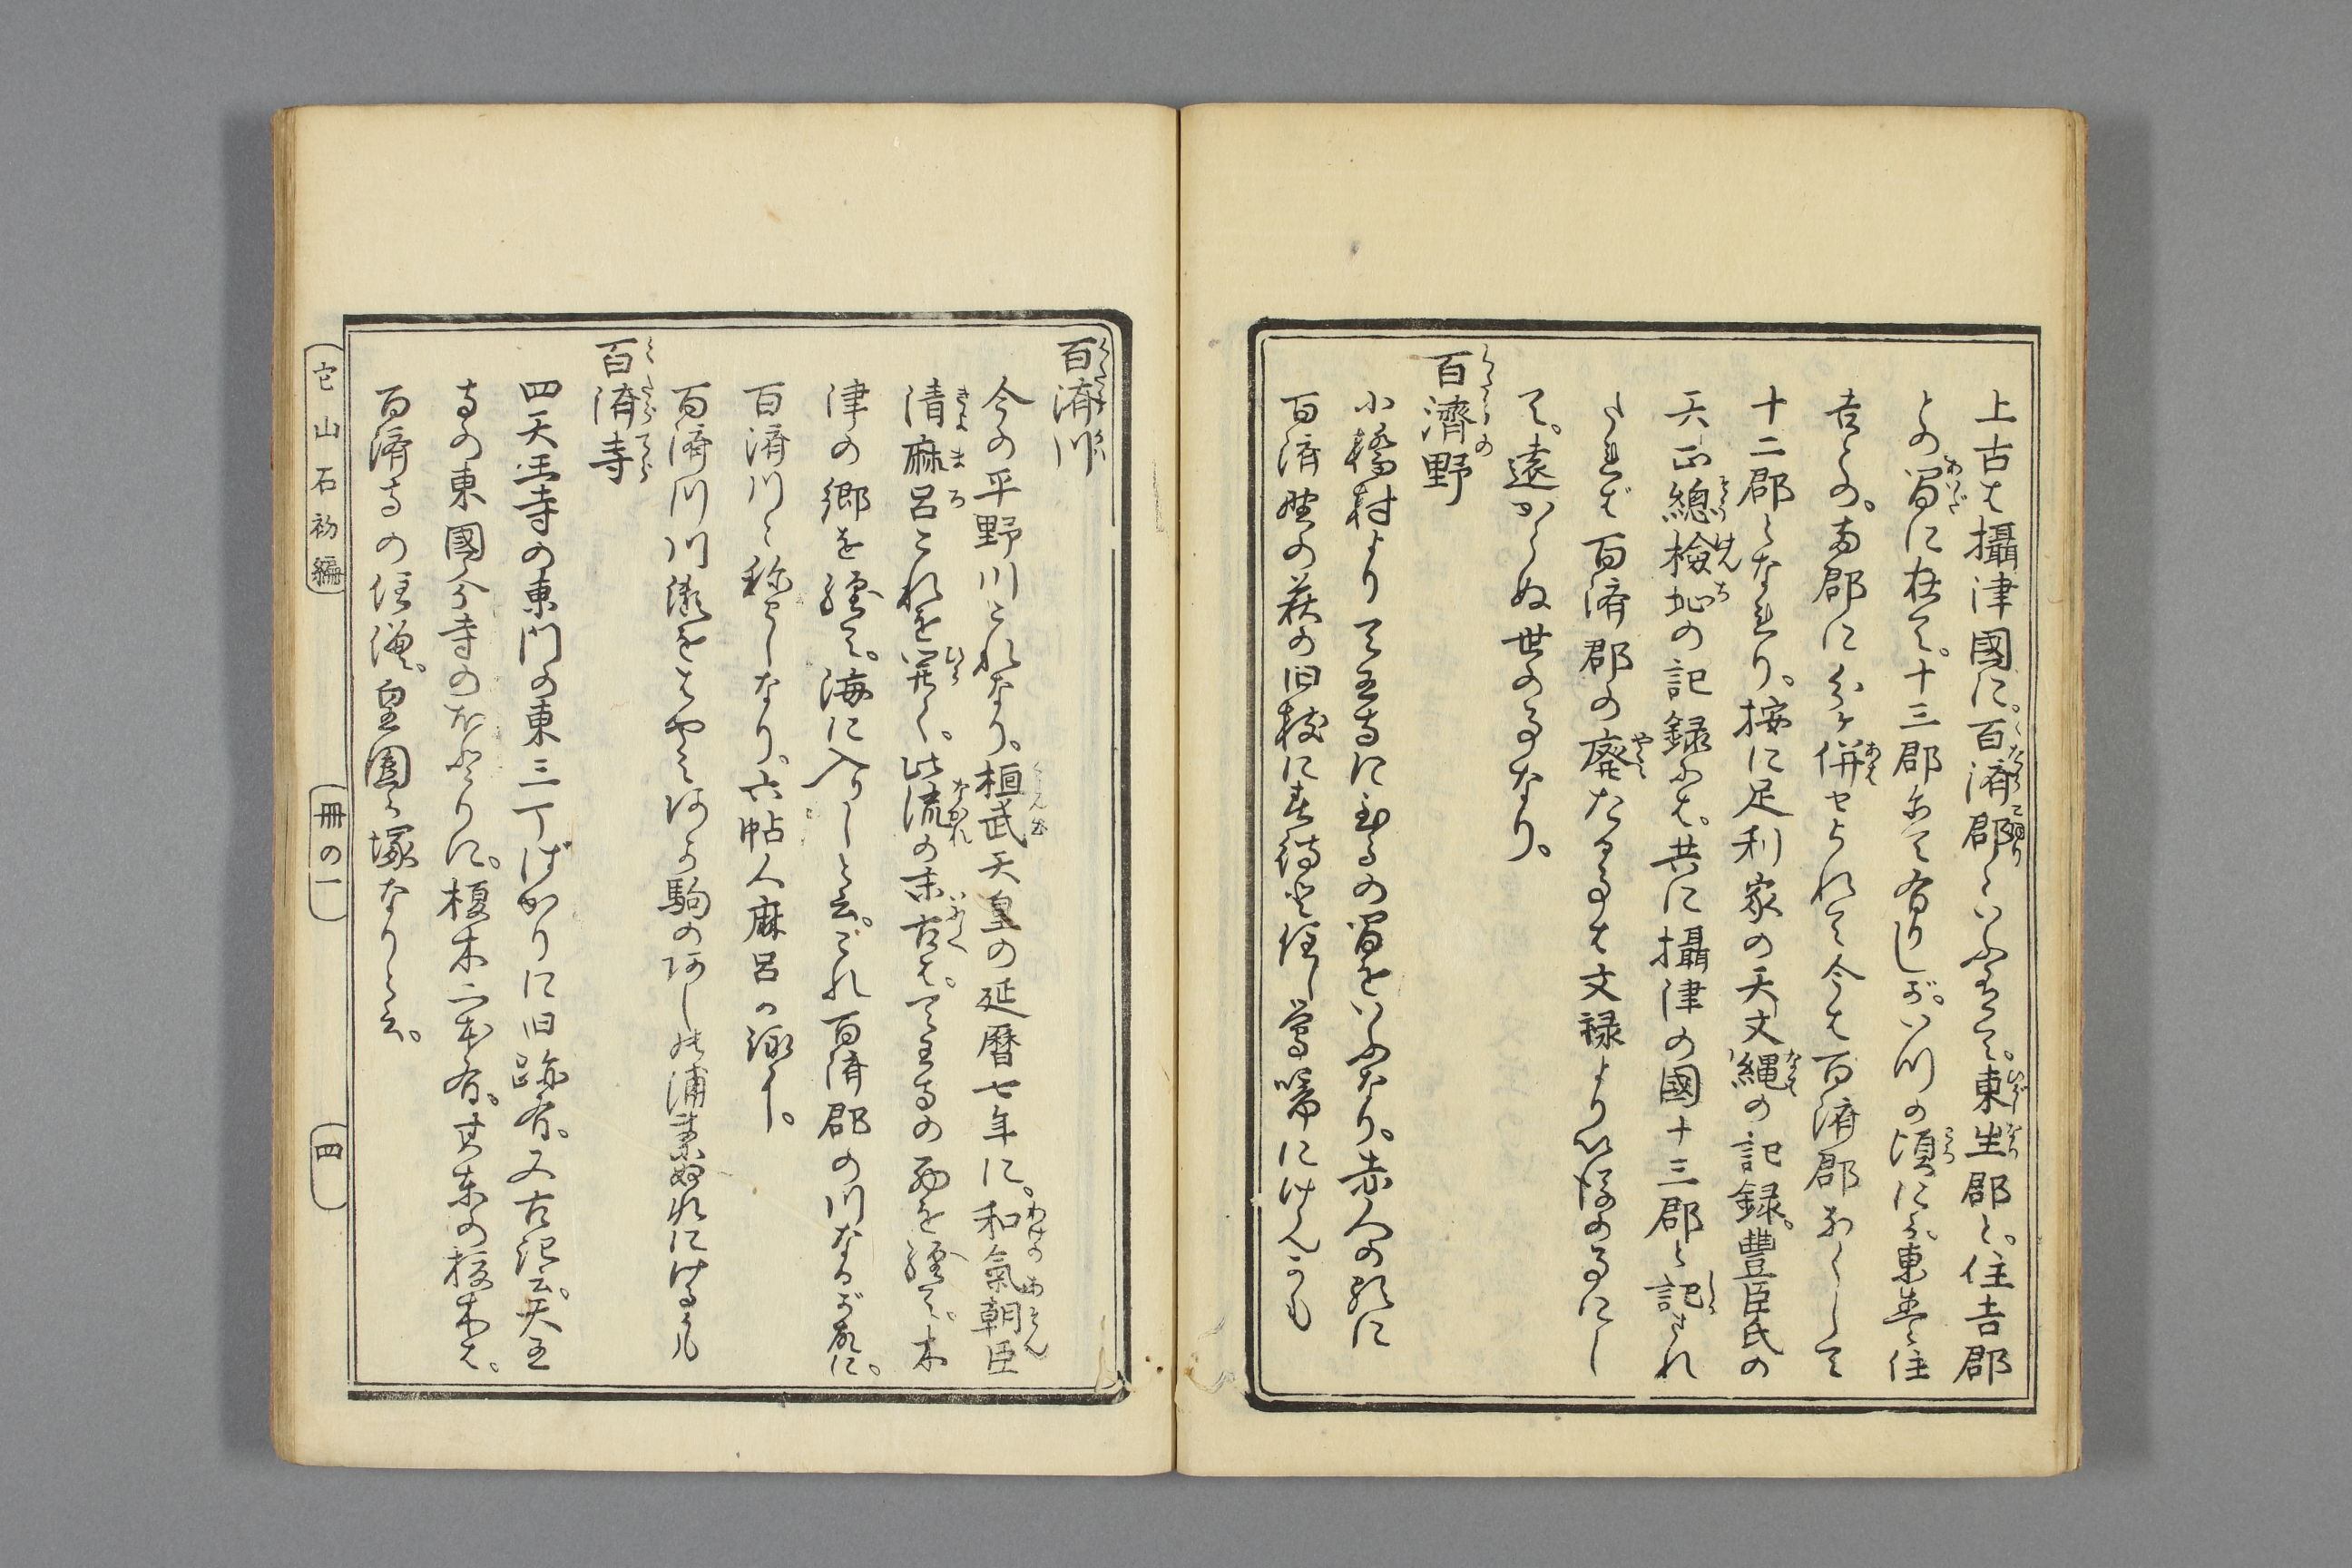 上古は攝津國に。百済郡といふ有て。東生郡と。住吉郡
との間に在て。十三郡にて有りしが。いつの頃にか。東生と住
吉との。両郡に分ケ併せられて今は百済郡なくして
十二郡となれり。按に足利家の天文縄の記録。豊臣氏の
天正總檢地の記録には。共に攝津の國十三郡と記され
たれば百済郡の廃たる事は文禄より以後の事にし
て。遠からぬ世の事なり。
百濟野
小橋村より天王寺に至るの間をいふなり。赤人の歌に
百済野の萩の旧枝に春待と住し鶯啼にけんかも
百済川
今の平野川これなり。桓武天皇の延暦七年に。和氣朝臣
清麻呂これを開く。此流の末古は。天王寺の西を經て。木
津の郷を經て。海に入りしと云。これ百済郡の川なるが故に。
百済川と称せしなり。六帖人麻呂の詠に。
百済川川瀬をはやみ阿か駒の阿しの浦まに ぬれにけるかも
百済寺
四天王寺の東門の東三丁ばかりに旧跡有。又古記云。天王
寺の東國分寺のほとりに。榎木二本有。其東の榎木は。
百済寺の住僧。皇圓か塚なりと云。
它山石初編
冊の一
四